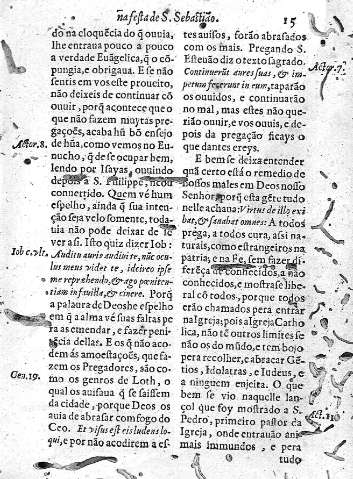 na festa de S. Sebastião.
15
do na cloquẽcia do q̃ ouuia,
lhe entraua pouco a pouco
a verdade Euãgelica, que o cõ-
pungia, e obrigaua. E se não
sentis em vos este proueito,
não deixeis de continuar cõ
ouuir, porq̃ acontece que o
que não fazem muytas pre-
gações, acaba hũ bõ ensejo
Actor. 8.
de hũa, como vemos no Eu-
nucho, q̃ de se ocupar bem,
lendo por Isayas, ouuindo
depois a S. Philippe, ficou
conuertido. Quem vé hum
espelho, ainda q̃ sua inten-
ção seja velo somente, toda-
uia não pode deixar de se
ver a si. Isto quiz dizer Iob:
Iob c. vlt.
Auditu auris audiui te, nũc ocu
lus meus videt te, idcirco ipse
me reprehendo, & ago pœniten-
tiam in fauilla, & cinere. Porq̃
a palaura de Deos he espelho
em q̃ a alma vé suas faltas pe
ra as emendar, e fazer peni-
tẽcia dellas. E os q̃ não acodẽ
ás amoestações, que fa-
zem os Pregadores, são co-
Gen. 19.
mo os genros de Loth, o
qual os auisaua q̃ se saissem
da cidade, porque Deos os
auia de abrasar com fogo do
Ceo. Et visus est eis ludens lo-
qui, e por não acodirem a es-
tes auisos, forão abrasados
com os mais. Pregando S.
Esteuão diz o texto sagrado.
Actor. 7.
Continuerũt aures suas, & im-
petum fecerunt in eum, taparão
os ouuidos, e continuarão
no mal, mas estes não que-
rião ouuir, e vos ouuis, e de-
pois da pregação ficays o
que dantes ereys.
E bem se deixa entender
quã certo está o remedio de
nossos males em Deos nosso
Senhor porq̃ esta gẽte tudo
nelle achaua: Virtus de illo exi
bat, & sanabat omnes: A todos
prega, a todos cura, assi na-
turais, como estrangeiros na
patria, e na Fe, sem fazer di-
ferẽça de conhecidos, a não
conhecidos, e mostrase libe-
ral cõ todos, porque todos
erão chamados pera entrar
na Igreja; pois a Igreja Catho
lica, não tẽ outros limites se
não os do mũdo, e tem bojo
pera recolher, e abracar Gẽ-
tios, Idolatras, e Iudeus, e
a ninguem enjeita. O que
bem se vio naquelle lan-
çol que foy mostrado a S.
Act. 11.
Pedro, primeiro pastor da
Igreja, onde entrauão ani-
mais immundos, e pera
tudo